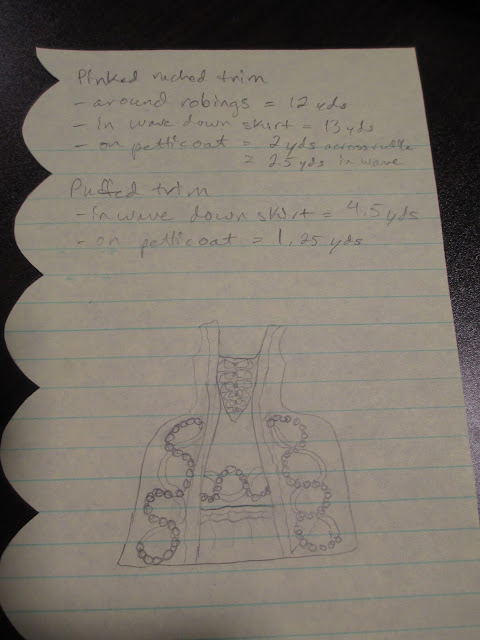 Pinked ruched trim
- around robings = 12 yds
- In wave down skirt = 13 yds
- on petticoat = 2 yds across ruffle
= 2.5 yds in wave
Puffed trim
- In wave down skirt = 4.5 yds
- on petticoat = 1.25 yds